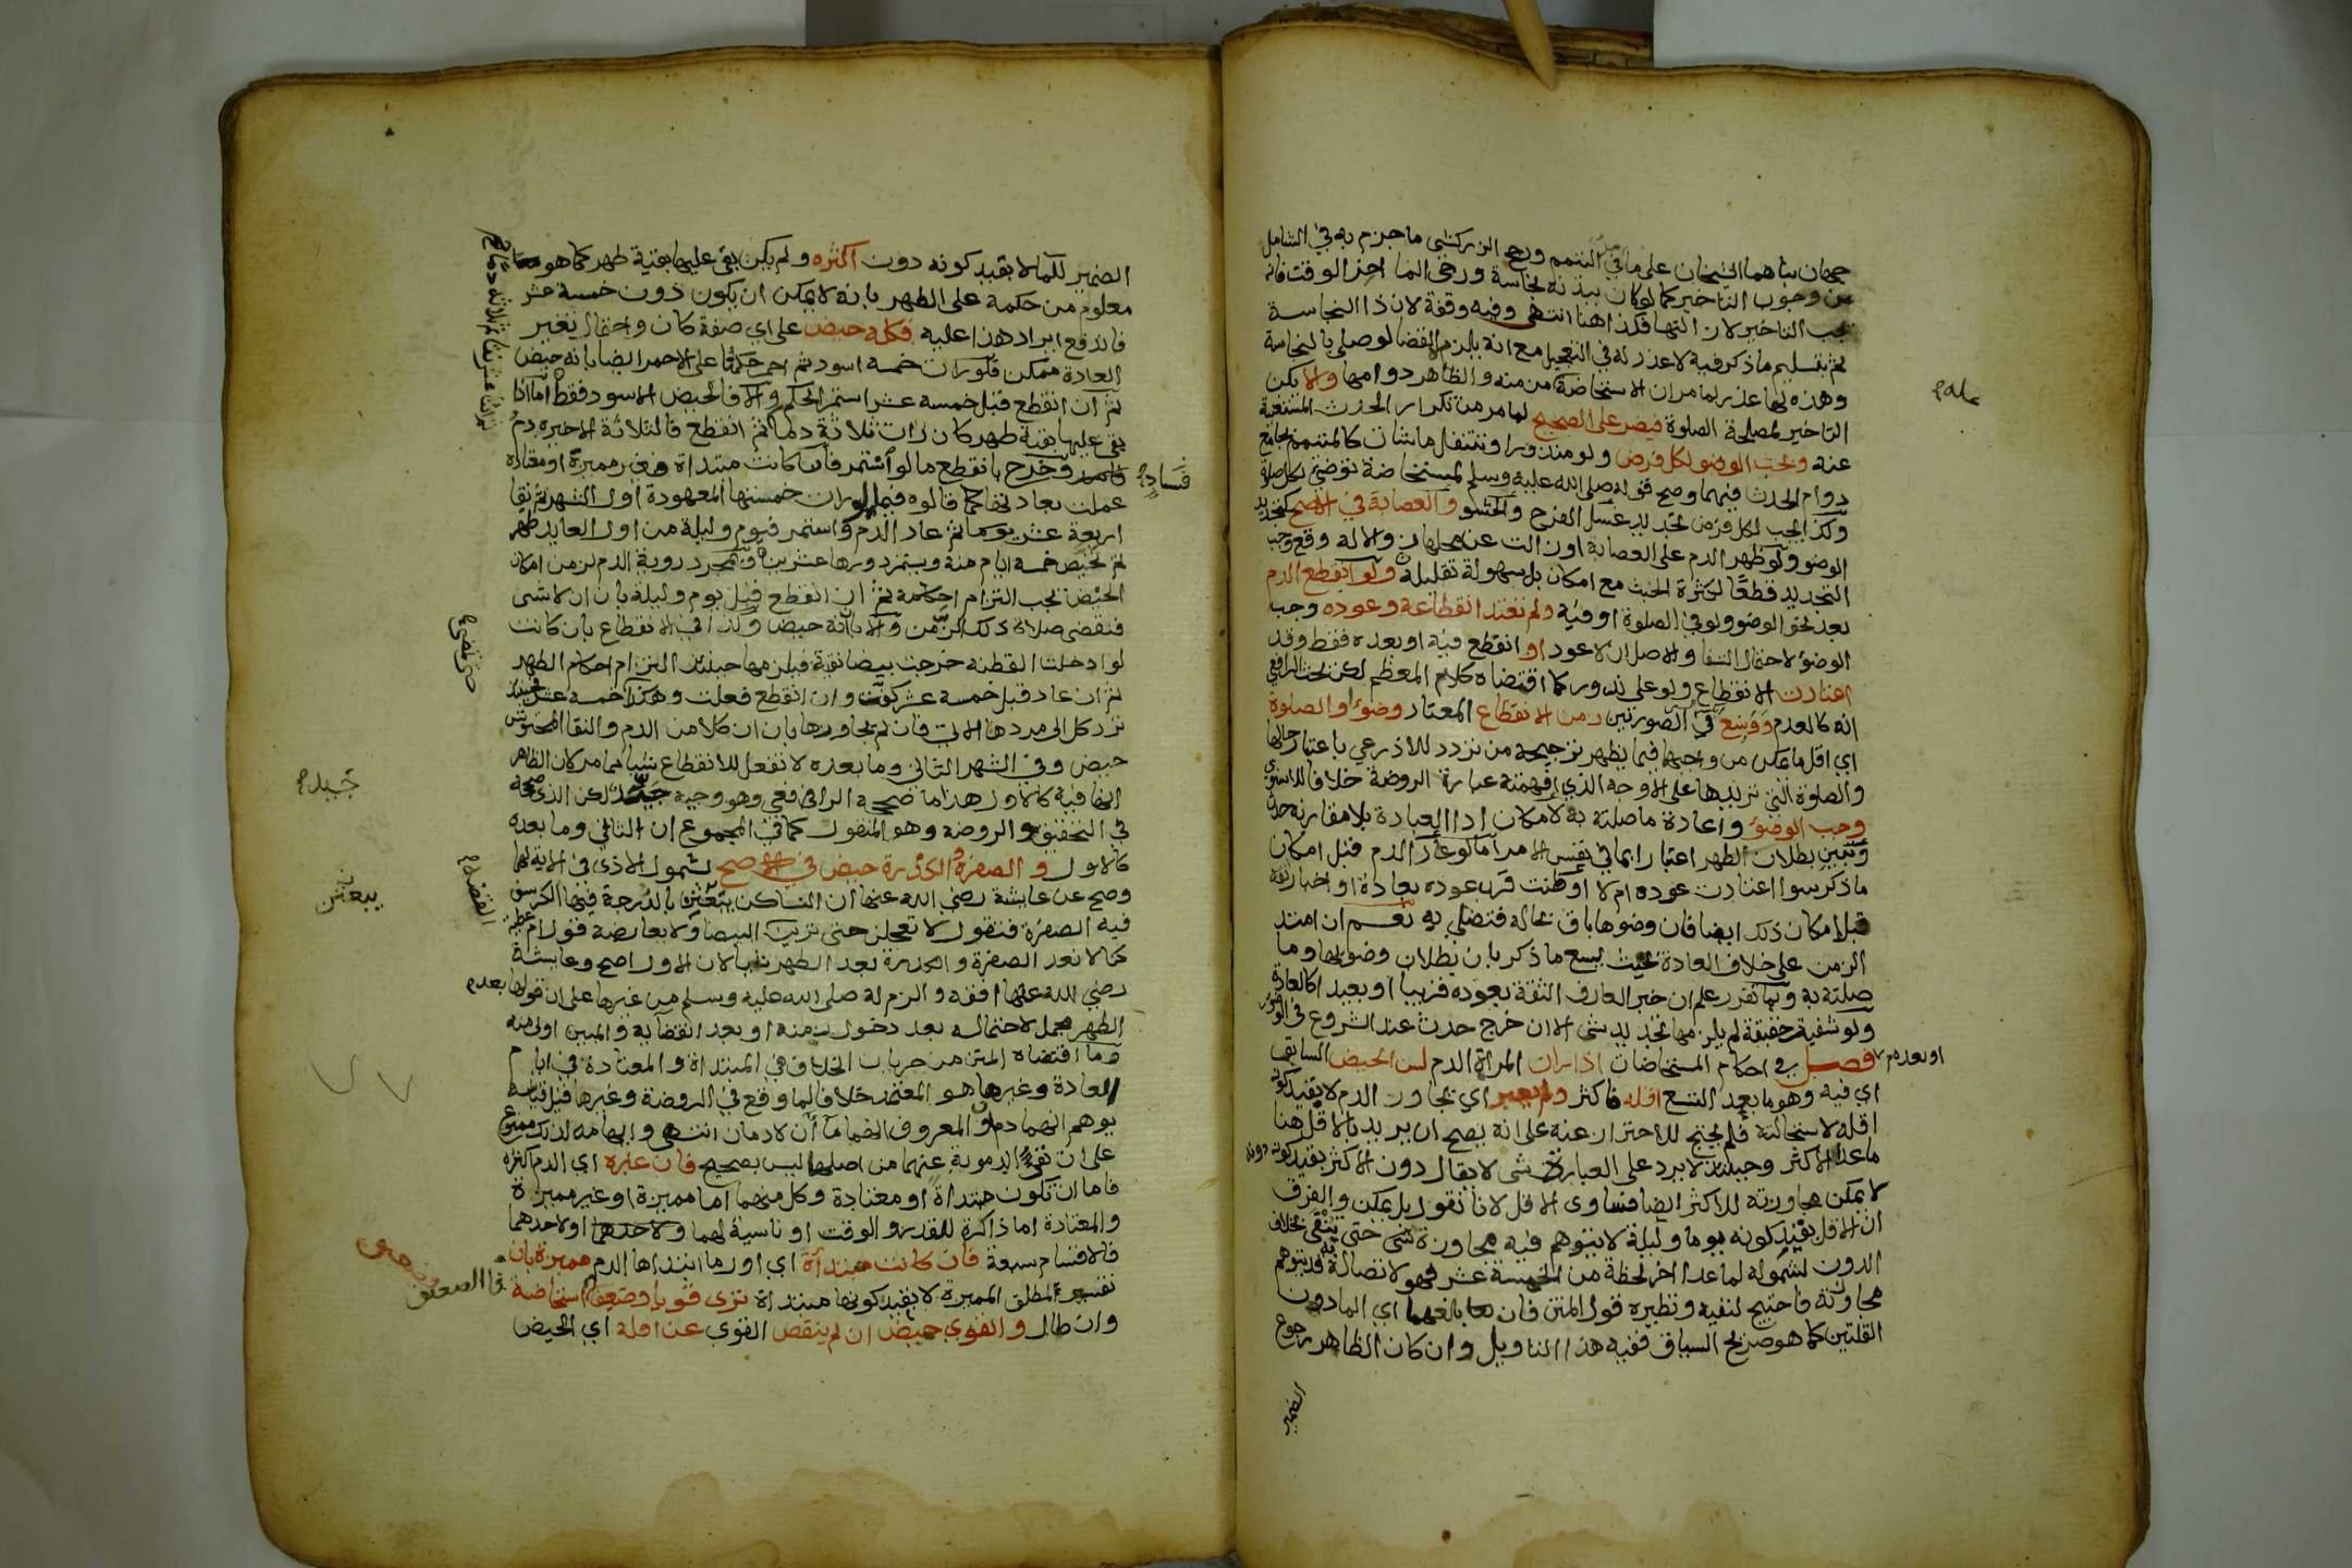 جهان بناهما الشيخان على ما في التيمم ورجح الزركشي ما جزم به في الشامل
من وجوب التأخير كما لو كان ببدنه نجاسة ورجى الماء اخر الوقت فانه
يجب التاخير لازالتها فكذا هنا انتهى وفيه وقفة لان ذا النجاسة
ثم بتسليم ما ذكر فيه لا عذر له في التعجيل مع انه يلزمه القضا لو صلى بالنجاسة
وهذه لها عذر لما مر ان الاستحاضة مزمنة والظاهر دوامها والا يكن
التاخير لمصلحة الصلوة فيضر على الصحيح لما مر من تكرار الحدث المستغنية
عنه ويجب الوضو لكل فرض ولو منذورا وتتنفل ما شات كالمتيمم بجامع
دوام الحدث فيهما وصح قوله صلى الله عليه وسلم لمستحاضة توضئي لكل صلاة
وكذا يجب لكل فرض تجديد غسل الفرج والحشو والعصابة في الاصح كتجديد
الوضو ولو ظهر الدم على العصابة او زالت عن محلها زوالا له وقع وجب
التجديد قطعا لكثرة الخبث مع امكان بل سهولة تقليله ولو انقطع الدم
بعد نحو الوضو ولو في الصلوة او فيه ولم تعتد انقطاعه وعوده وجب
الوضو لاحتمال الشفا والاصل ان لا عود او انقطع فيه او بعده فقط وقد
اعتادت الانقطاع ولو على ندور كما اقتضاه كلام المعظم لكن بحث الرافعي
انه كالعدم ووسع في الصورتين زمن الانقطاع المعتاد وضوا والصلوة
اي اقل ما يمكن من واجبها فيما يظهر ترجيحه من تردد للاذرعي باعتبار حالها
والصلوة التي تريدها على الاوجه الذي افهمته عبارة الروضة خلافا للاسنوي
وجب الوضو واعادة ما صلته به لامكان ادا العبادة بلا مقارنة حدث
وتبين بطلان الطهر اعتبارا بما في نفس الامر اما لو عاد الدم قبل امكان
ما ذكر سوا اعتادت عوده ام لا او ظنت قرب عوده بعادة او اخبار ثقة
قبل امكان ذلك ايضا فان وضوها باق بحاله فتصلي به نعم ان امتد
الزمن على خلاف العادة بحيث يسع ما ذكر بان بطلان وضوئها وما
صلته به وبما تقرر علم ان خبر العارف الثقة بعوده قريبا او بعيدا كالعادة
ولو شفيت حقيقة لم يلزمها تجديد شي الا ان خرج حدث عند الشروع في الوضو
او بعده م فصل في احكام المستحاضات اذا رات المراة الدم لسن الحيض السابق
اي فيه وهو ما بعد التسع اقله فاكثر ولم يعبر اي يجاوز الدم لا بقيد كونه
اقله لاستحالته فلم يحتج للاحتراز عنه على انه يصح ان يريد بالاقل هنا
ما عدا الاكثر وحينئذ لا يرد على العبارة شي لا يقال دون الاكثر بقيد كونه دونه
لا يمكن مجاوزته للاكثر ايضا فتساوى الاقل لانا نقول بل يمكن والفرق
ان الاقل بقيد كونه يوما وليلة لا يتوهم فيه مجاوزة شي حتى ينفى بخلاف
الدون لشموله لما عدا اخر لحظة من الخمسة عشر فهو لاتصاله به قد يتوهم
مجاوزته فاحتيج لنفيه ونظيره قول المتن فان بلغهما اي المادون
القلتين كما هو صريح السياق ففيه هذا التاويل وان كان الظاهر رجوع
الضمير
الضمير للما لا بقيد كونه دون اكثره ولم يكن بقي عليها بقية طهر كما هو
معلوم من حكمه على الطهر بانه لا يمكن ان يكون دون خمسة عشر
فاندفع ايراد هذا عليه فكله حيض على اي صفة كان واحتمال تغير
العادة ممكن فلو رات خمسة اسود ثم احمر حكمنا على الاحمر ايضا بانه حيض
ثم ان انقطع قبل خمسة عشر استمر الحكم والا فالحيض الاسود فقط اما اذا
بقي عليها بقية طهر كان رات ثلاثة دما ثم انقطع فالثلاثة الاخيرة دم
فساد وخرج بانقطع ما لو استمر فان كانت مبتداة فغير مميزة او معتادة
عملت بعادتها كما قالوه فيما لو رات خمستها المعهودة اول الشهر ثم نقا
اربعة عشر يوما ثم عاد الدم واستمر فيوم وليلة من اول العايد طهر
ثم تحيض خمسة ايام منه ويستمر دورها عشرين وبمجرد روية الدم لزمن امكان
الحيض يجب التزام احكامه ثم ان انقطع قبل يوم وليلة بان ان لا شي
فتقضي صلاة ذلك الزمن والا بان انه حيض وكذا في الانقطاع بان كانت
لو ادخلت القطنة خرجت بيضا نقية فيلزمها حينئذ التزام احكام الطهر
ثم ان عاد قبل خمسة عشر كفت وان انقطع فعلت وهكذا خمسة عشر فحينئذ
ترد كل الى مردها الاتي فان لم يجاوزها بان ان كلا من الدم والنقا المحتوش
حيض وفي الشهر الثاني وما بعده لا تفعل للانقطاع شيا مما مر لان الظاهر
انها فيه كالاول هذا ما صححه الرافعي وهو وجيه لكن الذي صححه
في التحقيق والروضة وهو المنقول كما في المجموع ان الثاني وما بعده
كالاول والصفرة والكدرة حيض في الاصح لشمول الاذى في الاية لها
وصح عن عايشة رضي الله عنها ان النسا كن يبعثن بالدرجة فيها الكرسف
فيه الصفرة فتقول لا تعجلن حتى ترين القصة البيضا ولا يعارضه قول ام عطية
كنا لا نعد الصفرة والكدرة بعد الطهر شيا لان الاول اصح وعايشة
رضي الله عنها افقه والزم له صلى الله عليه وسلم من غيرها على ان قولها بعد م
الطهر مجمل لاحتماله بعد دخول زمنه او بعد انقضايه والمبين اولى منه
وما اقتضاه المتن من جريان الخلاف في المبتداة والمعتادة في ايام
العادة وغيرها هو المعتمد خلافا لما وقع في الروضة وغيرها قيل قياسه
يوهم انهما دم والمعروف انهما ماآن لا دمان انتهى وايهامه لذلك ممنوع
على ان نفي الدموية عنهما من اصلها ليس بصحيح فان عبره اي الدم اكثره
فاما ان تكون مبتداة او معتادة وكل منهما اما مميزة او غير مميزة
والمعتادة اما ذاكرة للقدر والوقت او ناسية لهما او لاحدهما
فالاقسام سبعة فان كانت مبتداة اي اول ما ابتداها الدم مميزة بان
تفسير لمطلق المميزة لا بقيد كونها مبتداة ترى قويا وضعيفا استحاضة
وان طال والقوي حيض ان لم ينقص القوي عن اقله اي الحيض